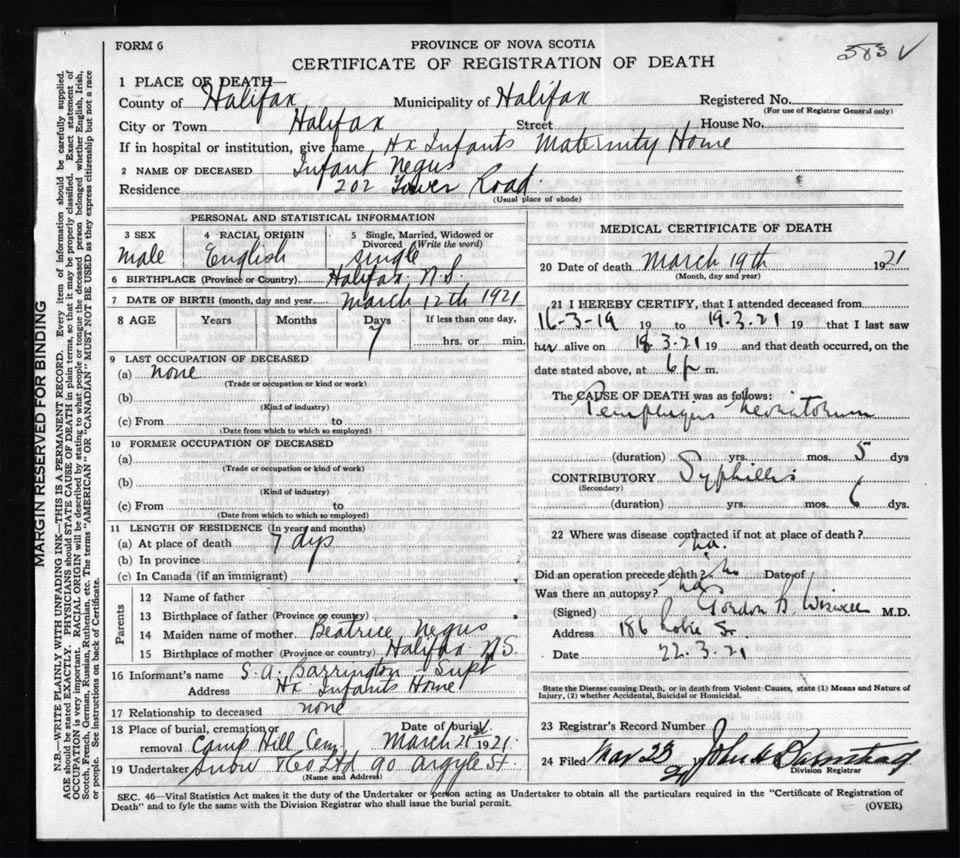 FORM 6
PROVINCE OF NOVA SCOTIA
383 ✓
CERTIFICATE OF REGISTRATION OF DEATH
1 PLACE OF DEATH—
County of Halifax Municipality of Halifax Registered No.
(For use of Registrar General only)
City or Town Halifax Street House No.
If in hospital or institution, give name Hx Infants Maternity Home
2 NAME OF DECEASED Infant Negus
Residence 202 Tower Road.
(Usual place of abode)
PERSONAL AND STATISTICAL INFORMATION
3 SEX 4 RACIAL ORIGIN 5 Single, Married, Widowed or Divorced (Write the word)
Male English single
6 BIRTHPLACE (Province or Country) Halifax N.S.
7 DATE OF BIRTH (month, day and year) March 12th 1921
8 AGE Years Months Days If less than one day,
7 hrs. or min.
9 LAST OCCUPATION OF DECEASED
(a) none
(Trade or occupation or kind of work)
(b)
(Kind of industry)
(c) From to
(Date from which to which so employed)
10 FORMER OCCUPATION OF DECEASED
(a)
(Trade or occupation or kind of work)
(b)
(Kind of industry)
(c) From to
(Date from which to which so employed)
11 LENGTH OF RESIDENCE (In years and months)
(a) At place of death 7 dys
(b) In province
(c) In Canada (if an immigrant)
Parents
12 Name of father
13 Birthplace of father (Province or country)
14 Maiden name of mother Beatrice Negus
15 Birthplace of mother (Province or country) Halifax N.S.
16 Informant's name S. A. Barrington Supt
Address Hx Infants Home
17 Relationship to deceased none
18 Place of burial, cremation or removal Camp Hill Cem Date of burial March 21 1921
19 Undertaker Snow & Co Ltd 90 Argyle St.
(Name and Address)
MEDICAL CERTIFICATE OF DEATH
20 Date of death March 19th 1921
(Month, day and year)
21 I HEREBY CERTIFY, that I attended deceased from
16-3-19 19 to 19.3.21 19 that I last saw
her alive on 18 3.21 19 and that death occurred, on the
date stated above, at 6 p m.
The CAUSE OF DEATH was as follows:
Pemphigus Neonatorum
(duration) yrs. mos. 5 dys
CONTRIBUTORY Syphillis
(Secondary)
(duration) yrs. mos. 6 dys.
22 Where was disease contracted if not at place of death?
no.
Did an operation precede death? no Date of
Was there an autopsy? no
(Signed) Gordon B. Wiswell M.D.
Address 186 Robie St.
Date 22.3.21
State the Disease causing Death, or in death from Violent Causes, state (1) Means and Nature of
Injury, (2) whether Accidental, Suicidal or Homicidal.
23 Registrar's Record Number
24 Filed Mar 23 21 John
Division Registrar
SEC. 46—Vital Statistics Act makes it the duty of the Undertaker or person acting as Undertaker to obtain all the particulars required in the "Certificate of Registration of
Death" and to fyle the same with the Division Registrar who shall issue the burial permit.
(OVER)
MARGIN RESERVED FOR BINDING
N.B.—WRITE PLAINLY WITH UNFADING INK—THIS IS A PERMANENT RECORD. Every item of information should be carefully supplied.
AGE should be stated EXACTLY. PHYSICIANS should STATE CAUSE OF DEATH in plain terms, so that it may be properly classified. Exact statement of
OCCUPATION is very important. RACIAL ORIGIN will be described by stating to what people or tongue the deceased person belonged whether English, Irish,
Scotch, French, German, Russian, Ruthenian, etc. The terms "AMERICAN" OR "CANADIAN" MUST NOT BE USED as they express citizenship but not a race
or people. See instructions on back of Certificate.